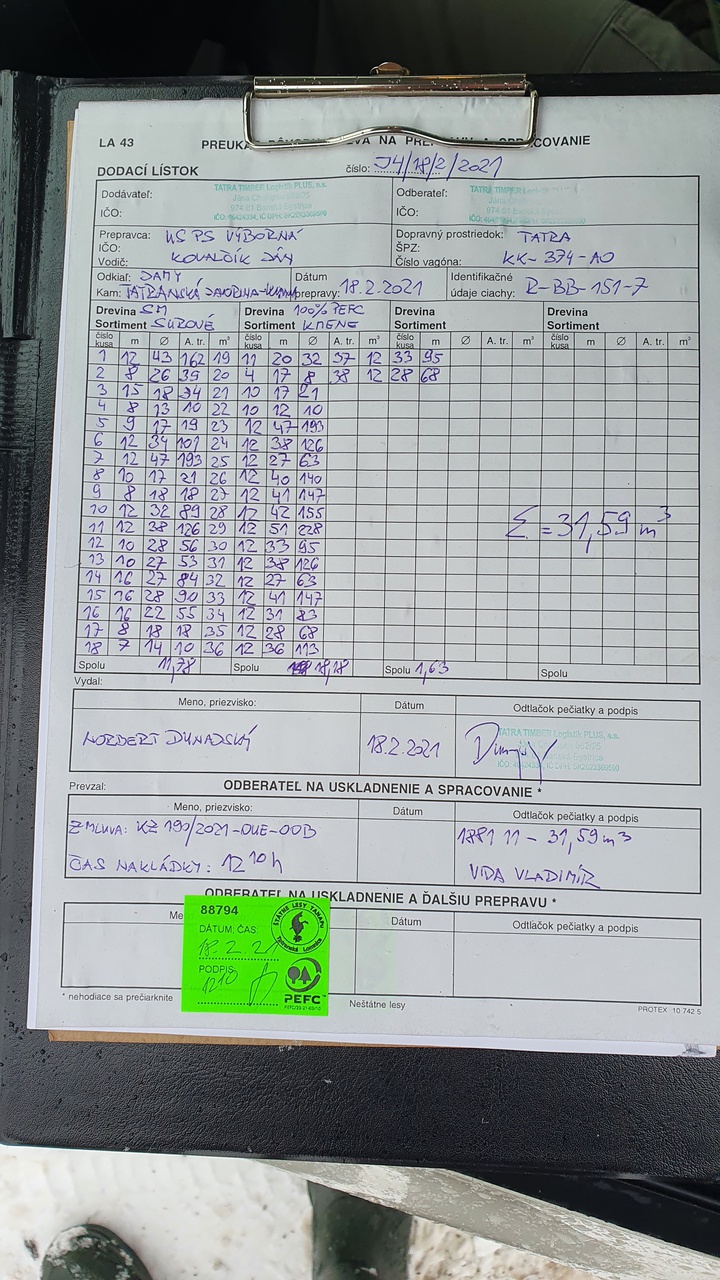 LA 43
DODACÍ LÍSTOK číslo: J4/18/2/2021
Dodávateľ: TATRA TIMBER Logistik PLUS, a.s.
974 01 Banská Bystrica
IČO:
Odberateľ: TATRA TIMBER Logistik PLUS, a.s.
IČO:
Prepravca: KS PS VÝBORNÁ
IČO:
Vodič: KOVALČÍK JÁN
Dopravný prostriedok: TATRA
ŠPZ:
Číslo vagóna: KK-374-AO
Odkiaľ: JAMY
Kam: TATRANSKÁ JAVORINA
Dátum
prepravy: 18.2.2021
Identifikačné
údaje ciachy: R-BB-151-7
Drevina SM Drevina 100% PEFC Drevina Drevina
Sortiment SUROVÉ Sortiment KMENE Sortiment Sortiment
číslo kusa m Ø A. tr. m³ číslo kusa m Ø A. tr. m³ číslo kusa m Ø A. tr. m³ číslo kusa m Ø A. tr. m³
1 12 43 162 19 11 20 32 37 12 33 95
2 8 26 39 20 4 17 8 38 12 28 68
3 15 18 34 21 10 17 21
4 8 13 10 22 10 12 10
5 9 17 19 23 12 47 193
6 12 34 101 24 12 38 126
7 12 47 193 25 12 27 63
8 10 17 21 26 12 40 140
9 8 18 18 27 12 41 147
10 12 32 89 28 12 42 155
11 12 38 126 29 12 51 228
12 10 28 56 30 12 33 95
13 10 27 53 31 12 38 126
14 16 27 84 32 12 27 63
15 16 28 90 33 12 41 147
16 16 22 55 34 12 31 83
17 8 18 18 35 12 28 68
18 7 14 10 36 12 36 113
Σ = 31,59 m³
Spolu 11,78 Spolu 18,18 Spolu 1,63 Spolu
Vydal:
Meno, priezvisko: Dátum Odtlačok pečiatky a podpis
NORBERT DUNAJSKÝ 18.2.2021
TATRA TIMBER Logistik PLUS, a.s.
Prevzal: ODBERATEĽ NA USKLADNENIE A SPRACOVANIE *
Meno, priezvisko: Dátum Odtlačok pečiatky a podpis
ZMLUVA: KZ 190/2021-OUE-OOB 1881 11 - 31,59 m³
ČAS NAKLÁDKY: 12 10 h VIDA VLADIMÍR
ODBERATEĽ NA USKLADNENIE A ĎALŠIU PREPRAVU *
Dátum Odtlačok pečiatky a podpis
88794
DÁTUM, ČAS:
18.2.21
PODPIS:
1210
ŠTÁTNE LESY TANAPU
Tatranská Lomnica
PEFC
* nehodiace sa prečiarknite Neštátne lesy PROTEX 10 742 5